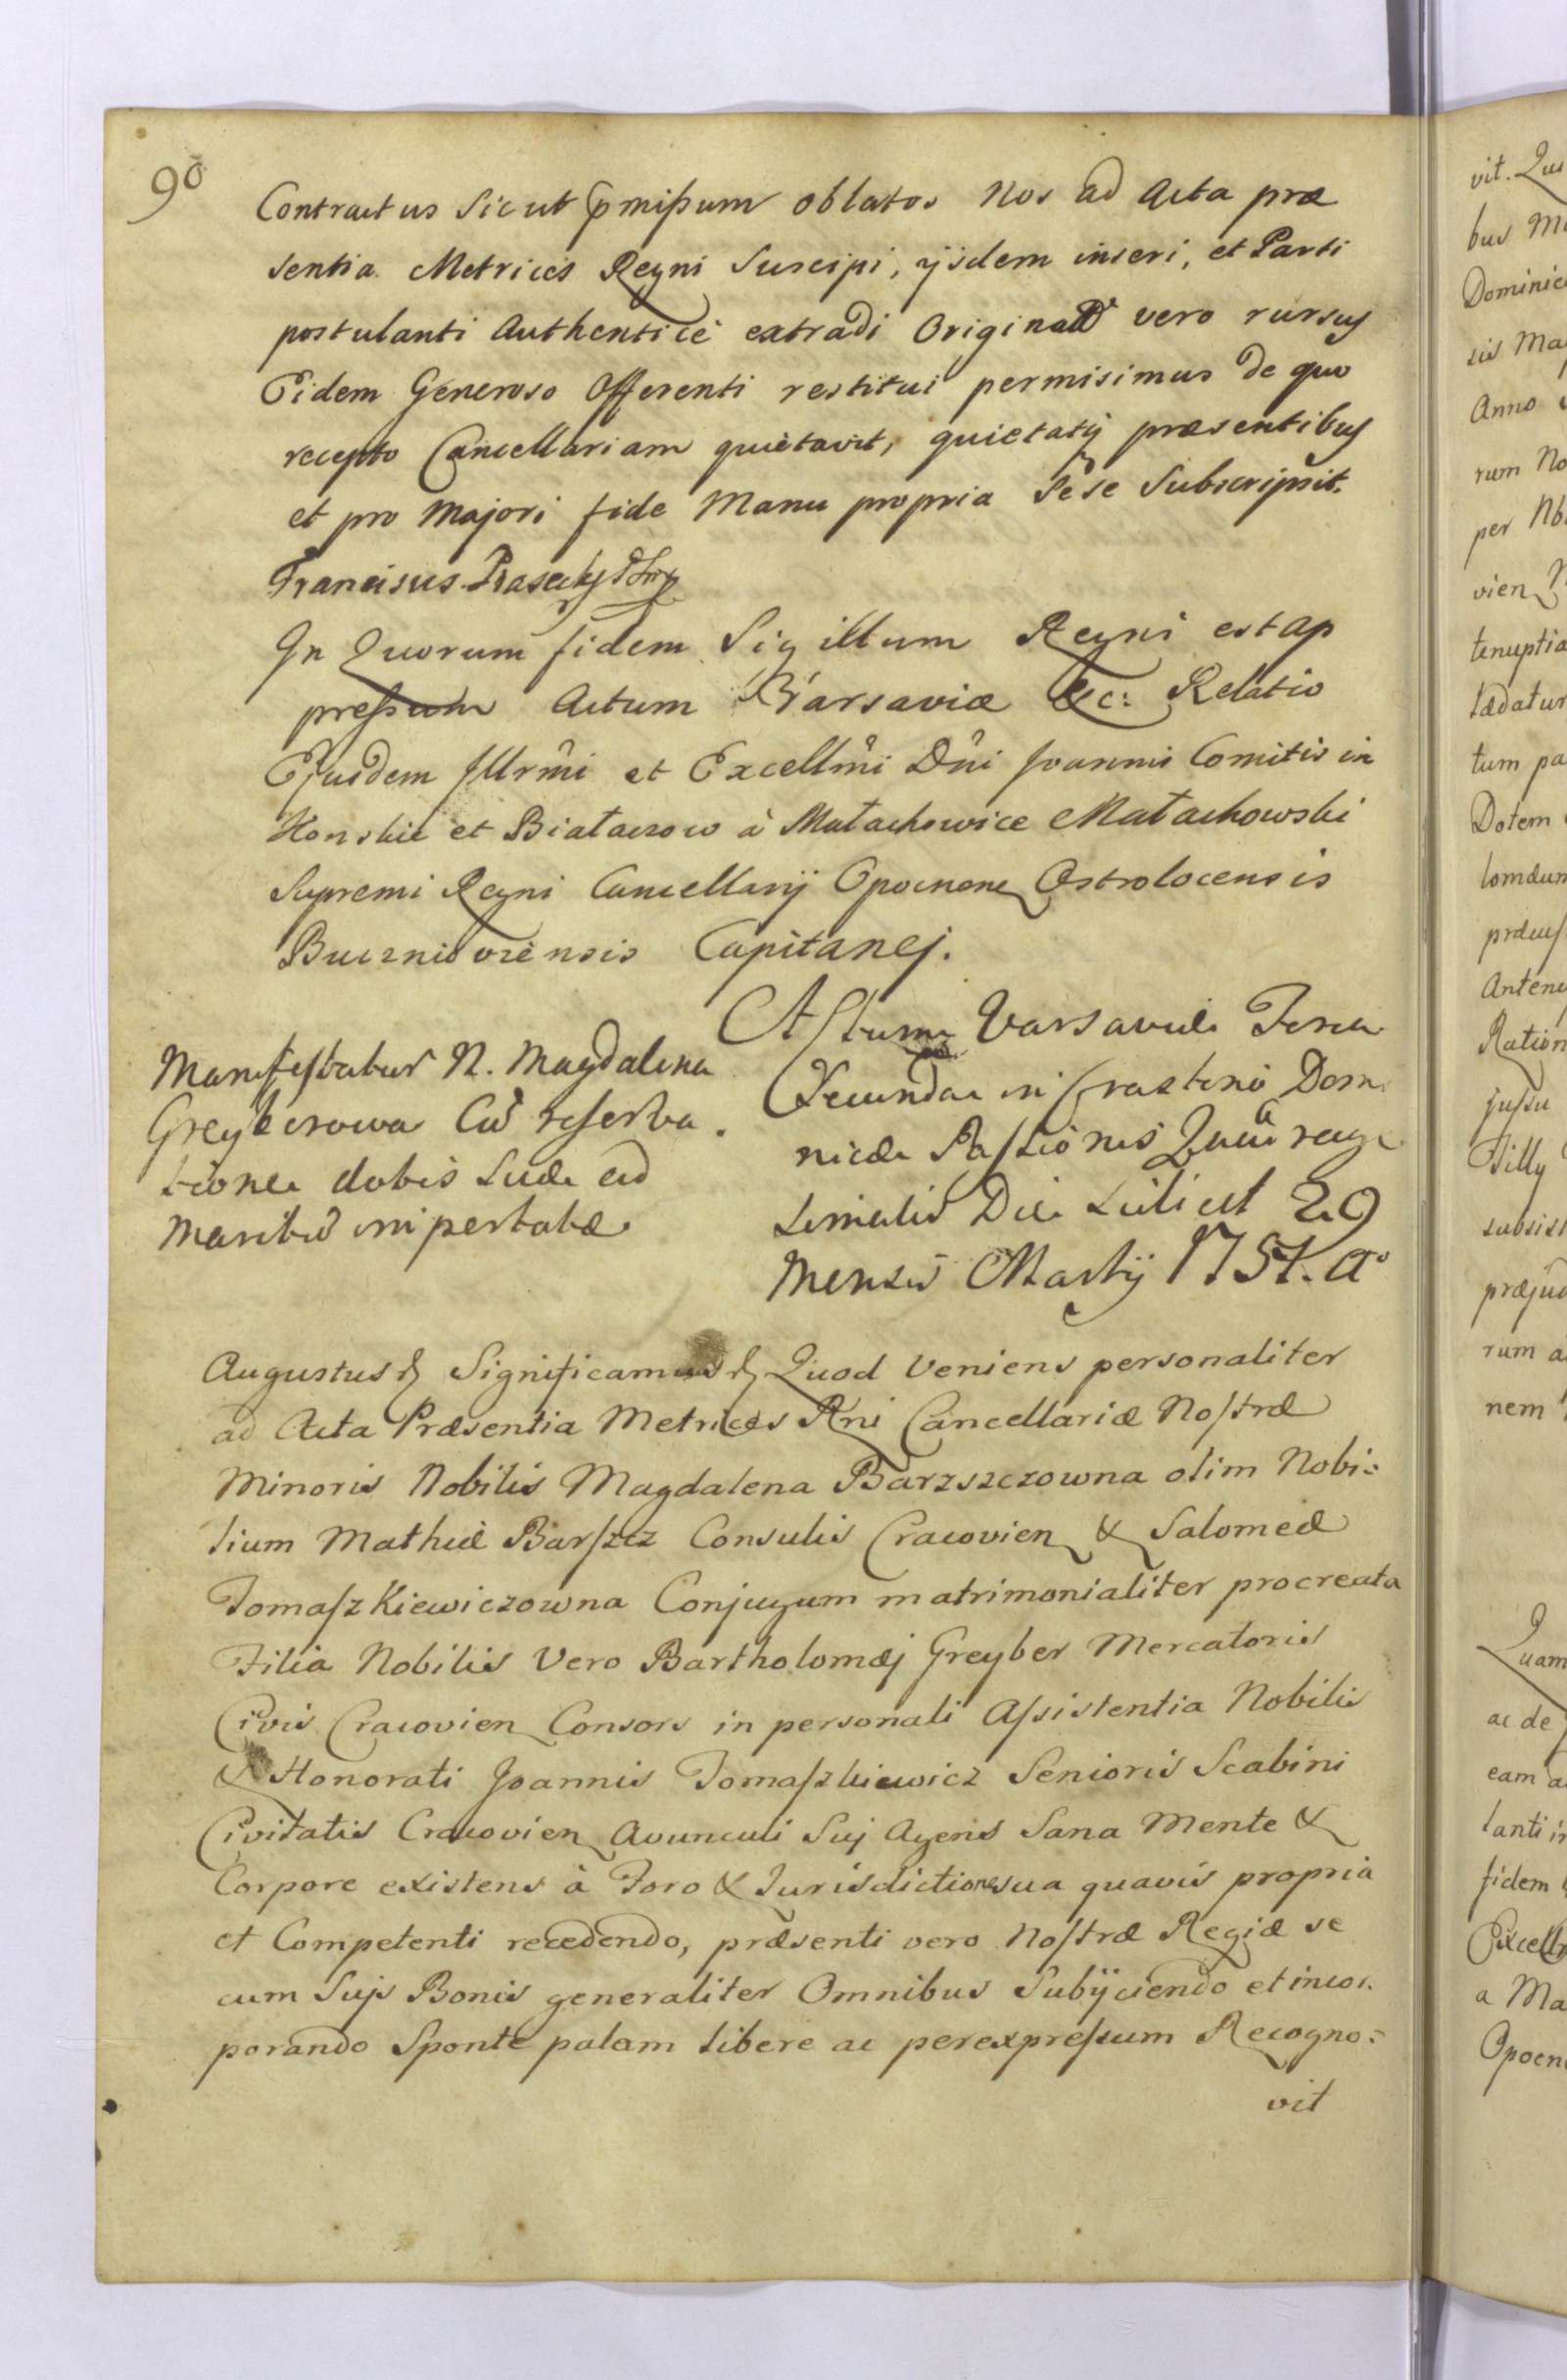 90
Contractus Sicut Pmißum oblatos Nos ad Acta præ
sentia Metrices Regni Suscipi, ijsdem inseri, et Parti
postulanti Authenticè extradi Original vero rursus
Eidem Generoso Offerenti restitui permisimus de quo
recepto Cancellariam quietavit, quietatq præsentibus
et pro Majori fide Manu propria Sese Subscripsit.
Franciscus
In Quorum fidem Sigillum Regni est ap
preßum Actum Varsaviæ &c: Relatio
Ejusdem Illrmi et Excellmi Dni Joannis Comitis in
Konskie et Białaczow à Małachowice Małachowski
Supremi Regni Cancellarij Opocnen Ostrolocensis
Capitanej.
Manifestatur N. Magdalena
Greyberowa Cū reserva
tione dotis Suæ ad
Maritū importatæ
Actum Varsaviæ Feria
Secunda in Crastino Domi
nicæ Passionis Quadrage
simalis Die Scilicet 29
Mensis Martij 1751. Ao
Augustus & Significamus & Quod Veniens personaliter
ad Acta Præsentia Metrices Rni Cancellariæ Nostræ
Minoris Nobilis Magdalena Barzszczowna olim Nobi=
lium Mathiæ Barszcz Consulis Cracovien & Salomeæ
Tomaszkiewiczowna Conjugum matrimonialiter procreata
Filia Nobilis Vero Bartholomæj Greyber Mercatoris
Civis Cracovien Consors in personali Assistentia Nobilis
& Honorati Joannis Tomaszkiewicz Senioris Scabini
Civitatis Cracovien Avunculi Suj Agens Sana Mente &
Corpore existens à Foro & Jurisdictione sua quavis propria
et Competenti recedendo, præsenti vero Nostræ Regiæ se
cum Sujs Bonis generaliter Omnibus Subijciendo et incor.
porando Sponte palam libere ac per expressum Recogno=
vit
vit. Qui
bus
Dominic
sis Ma
Anno
rum No
per Nb
vien
tenuptia
tædatur
tum pa
Dotem
præcus
Antenu
Ration
jussu
Filly
subsist
præjud
rum a
nem
Quam
ac de
eam a
lanti in
fidem
Excell
a Ma
Opocn